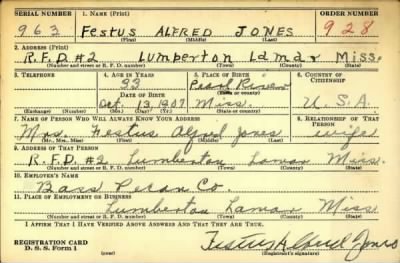 SERIAL NUMBER 1. NAME (Print) ORDER NUMBER
963 Festus ALFRED JONES 928
(First) (Middle) (Last)
2. ADDRESS (Print)
R.F.D. #2 Lumberton Lamar Miss.
(Number and street or R. F. D. number) (Town) (County) (State)
3. TELEPHONE 4. AGE IN YEARS 5. PLACE OF BIRTH 6. COUNTRY OF CITIZENSHIP
33 Pearl River
DATE OF BIRTH (Town or county)
Oct. 13, 1907 Miss. U.S.A.
(Exchange) (Number) (Mo.) (Day) (Yr.) (State or country)
7. NAME OF PERSON WHO WILL ALWAYS KNOW YOUR ADDRESS 8. RELATIONSHIP OF THAT PERSON
Mrs. Festus Alfred Jones wife
(Mr., Mrs., Miss) (First) (Middle) (Last)
9. ADDRESS OF THAT PERSON
R.F.D. #2 Lumberton Lamar Miss.
(Number and street or R. F. D. number) (Town) (County) (State)
10. EMPLOYER'S NAME
Bass Pecan Co.
11. PLACE OF EMPLOYMENT OR BUSINESS
Lumberton Lamar Miss
(Number and street or R. F. D. number) (Town) (County) (State)
I AFFIRM THAT I HAVE VERIFIED ABOVE ANSWERS AND THAT THEY ARE TRUE.
REGISTRATION CARD
D. S. S. Form 1 Festus Alfred Jones
(Registrant's signature)